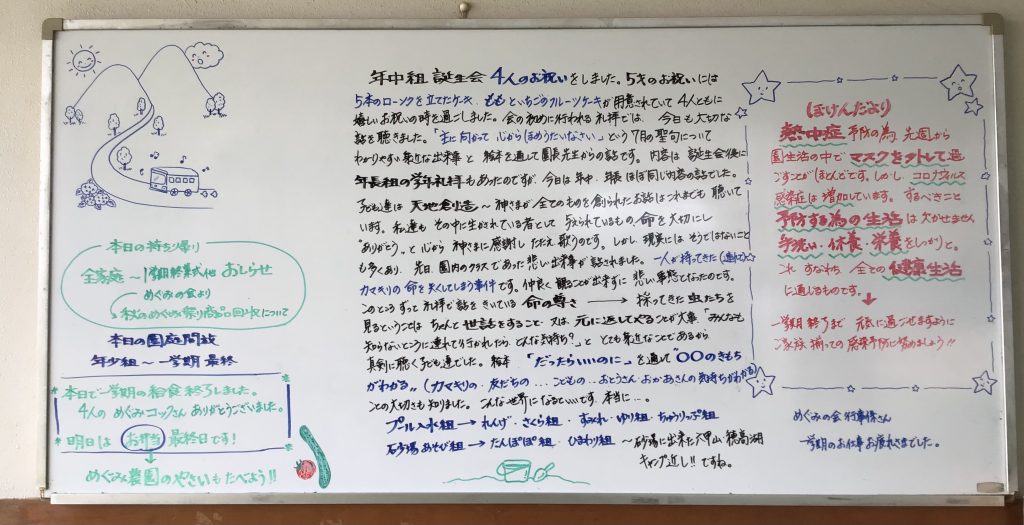 本日の持ち帰り
全家庭～1学期終業式他 おしらせ
めぐみの会より
秋のめぐみ祭り商品回収について
本日の園庭開放
年少組～一学期 最終
本日で一学期の給食 終了しました。
4人の めぐみコックさん ありがとうございました。
明日は お弁当 最終日です!
めぐみ農園のやさいも たべよう!!
年中組 誕生会 4人のお祝いをしました。5才のお祝いには
5本のローソクを立てたケーキ、ももといちごのフルーツケーキが用意されていて 4人ともに
嬉しいお祝いの時を過ごしました。会の初めに行われる礼拝では、今日も大切な
話を聴きました。「主に向かって 心からほめうたいなさい」という 7月の聖句について
わかりやすい身近な出来事と 絵本を通して園長先生からの話です。内容は 誕生会後に
年長組の学年礼拝もあったのですが、今日は年中・年長 ほぼ同じ内容の話でした。
子ども達は 天地創造～神さまが全てのものを創られたお話はこれまでも 聴いて
います。私達も その中に生かされている者として 与えられているもの、命を大切にし
"ありがとう"と心から 神さまに感謝し ただえ 歌うのです。しかし、現実には そうではないこと
も多くあり、先日、園内のクラスであった悲しい出来事が話されました。一人が持ってきた(連れて)
カマキリの命を失くしてしまう事件です。仲良く 観ることが出来ずに 悲しい事態となったのです。
このような 礼拝で話をきいている 命の尊さ → 採ってきた虫たちを
見るということは ちゃんと世話をすること・又は、元に返してやることが大事「みんなも
知らないところに連れて行かれたら、どんな気持ち?」と とても身近なことであるから
真剣に聴く子ども達でした。絵本 「だったらいいのに」を通して"〇〇のきもち
がわかる"(カマキリの・友だちの...こどもの・・おとうさん・おかあさんの気持ちがわかる)
ことの大切さも知りました。こんな世界になるといいです。本当に...。
プール入水組 → れんげ・さくら組・すみれ・ゆり組・ちゅうりっぷ組
砂場あそび組 → たんぽぽ組・ひまわり組 ～砂場に出来た六甲山・穂高湖
キャンプ近し!!ですね。
ほけんだより
熱中症 予防の為、先週から
園生活の中で マスクを外して過
ごすことがほとんどです。しかし、コロナウイルス
感染症は 増加しています。するべきこと
予防する為の生活は 欠かせません
手洗い・休養・栄養をしっかりと。
これ すなわち 全ての 健康生活
に通じるものです。
一学期 終了まで 元気に過ごせますように
ご家族 揃っての感染予防に努めましょう!!
めぐみの会 行事係さん
一学期のお仕事 お疲れさまでした。